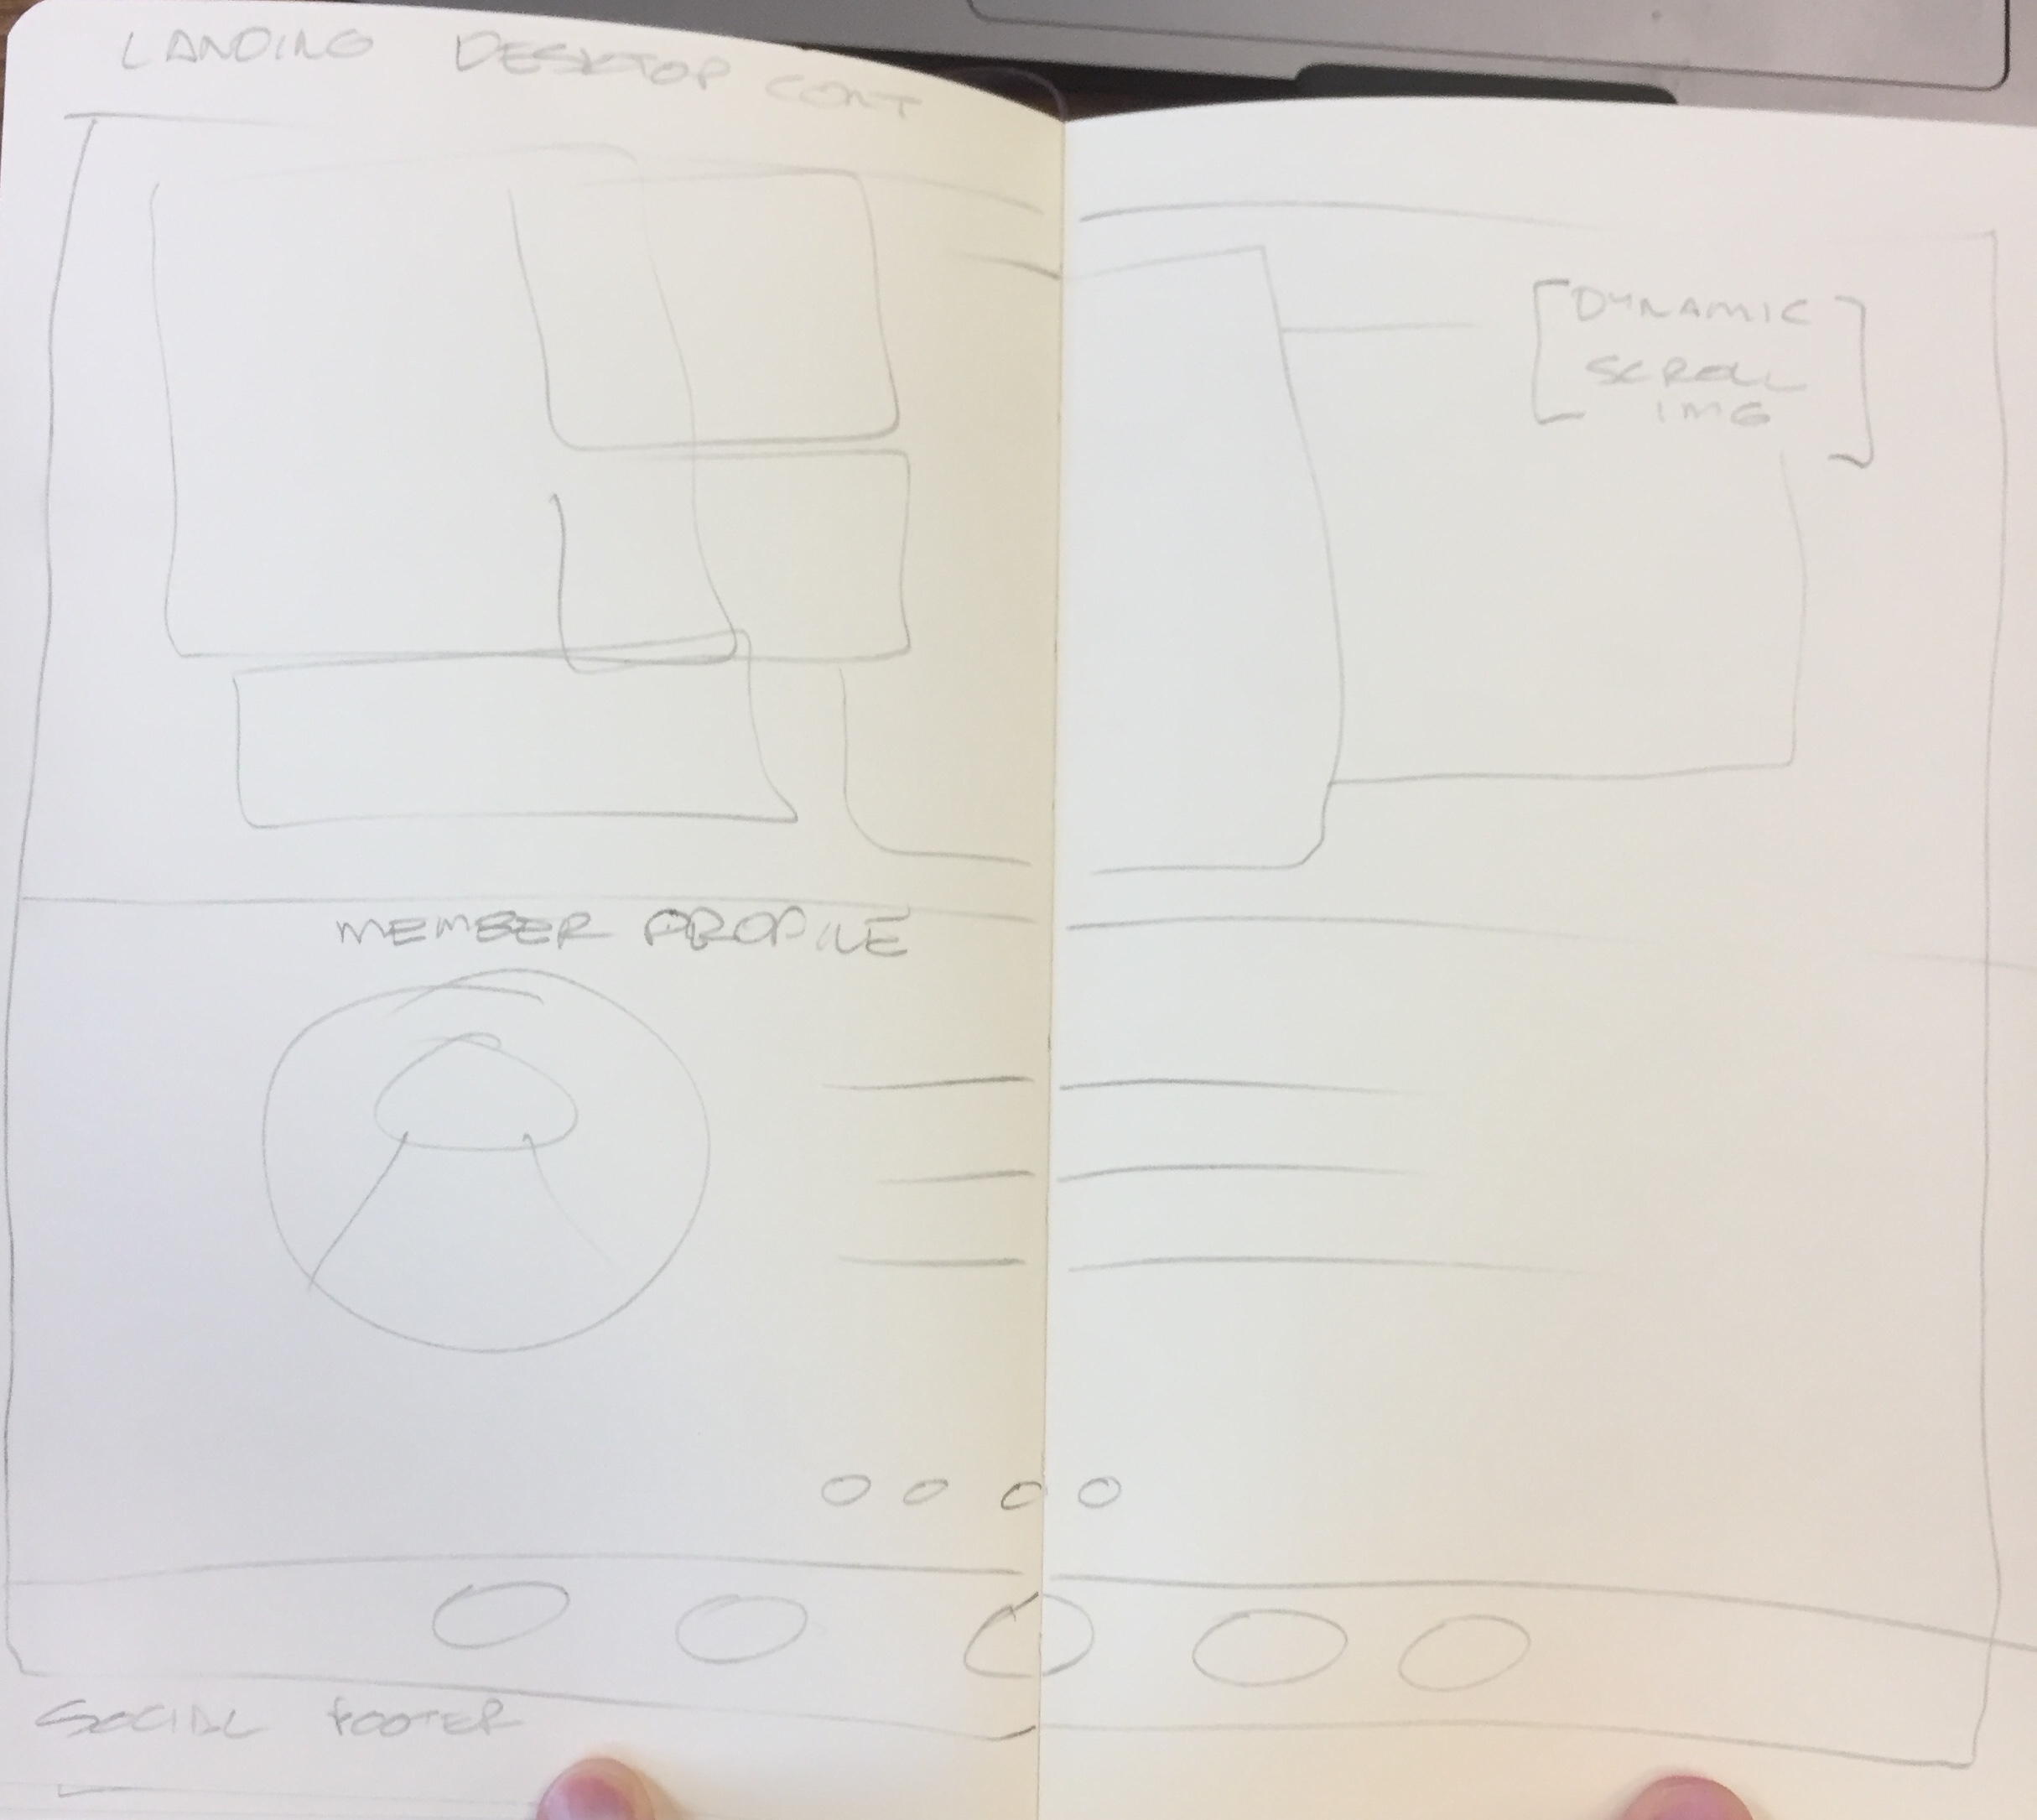 LANDING DESKTOP CONT
[DYNAMIC
SCROLL
IMG]
MEMBER PROFILE
SOCIAL FOOTER